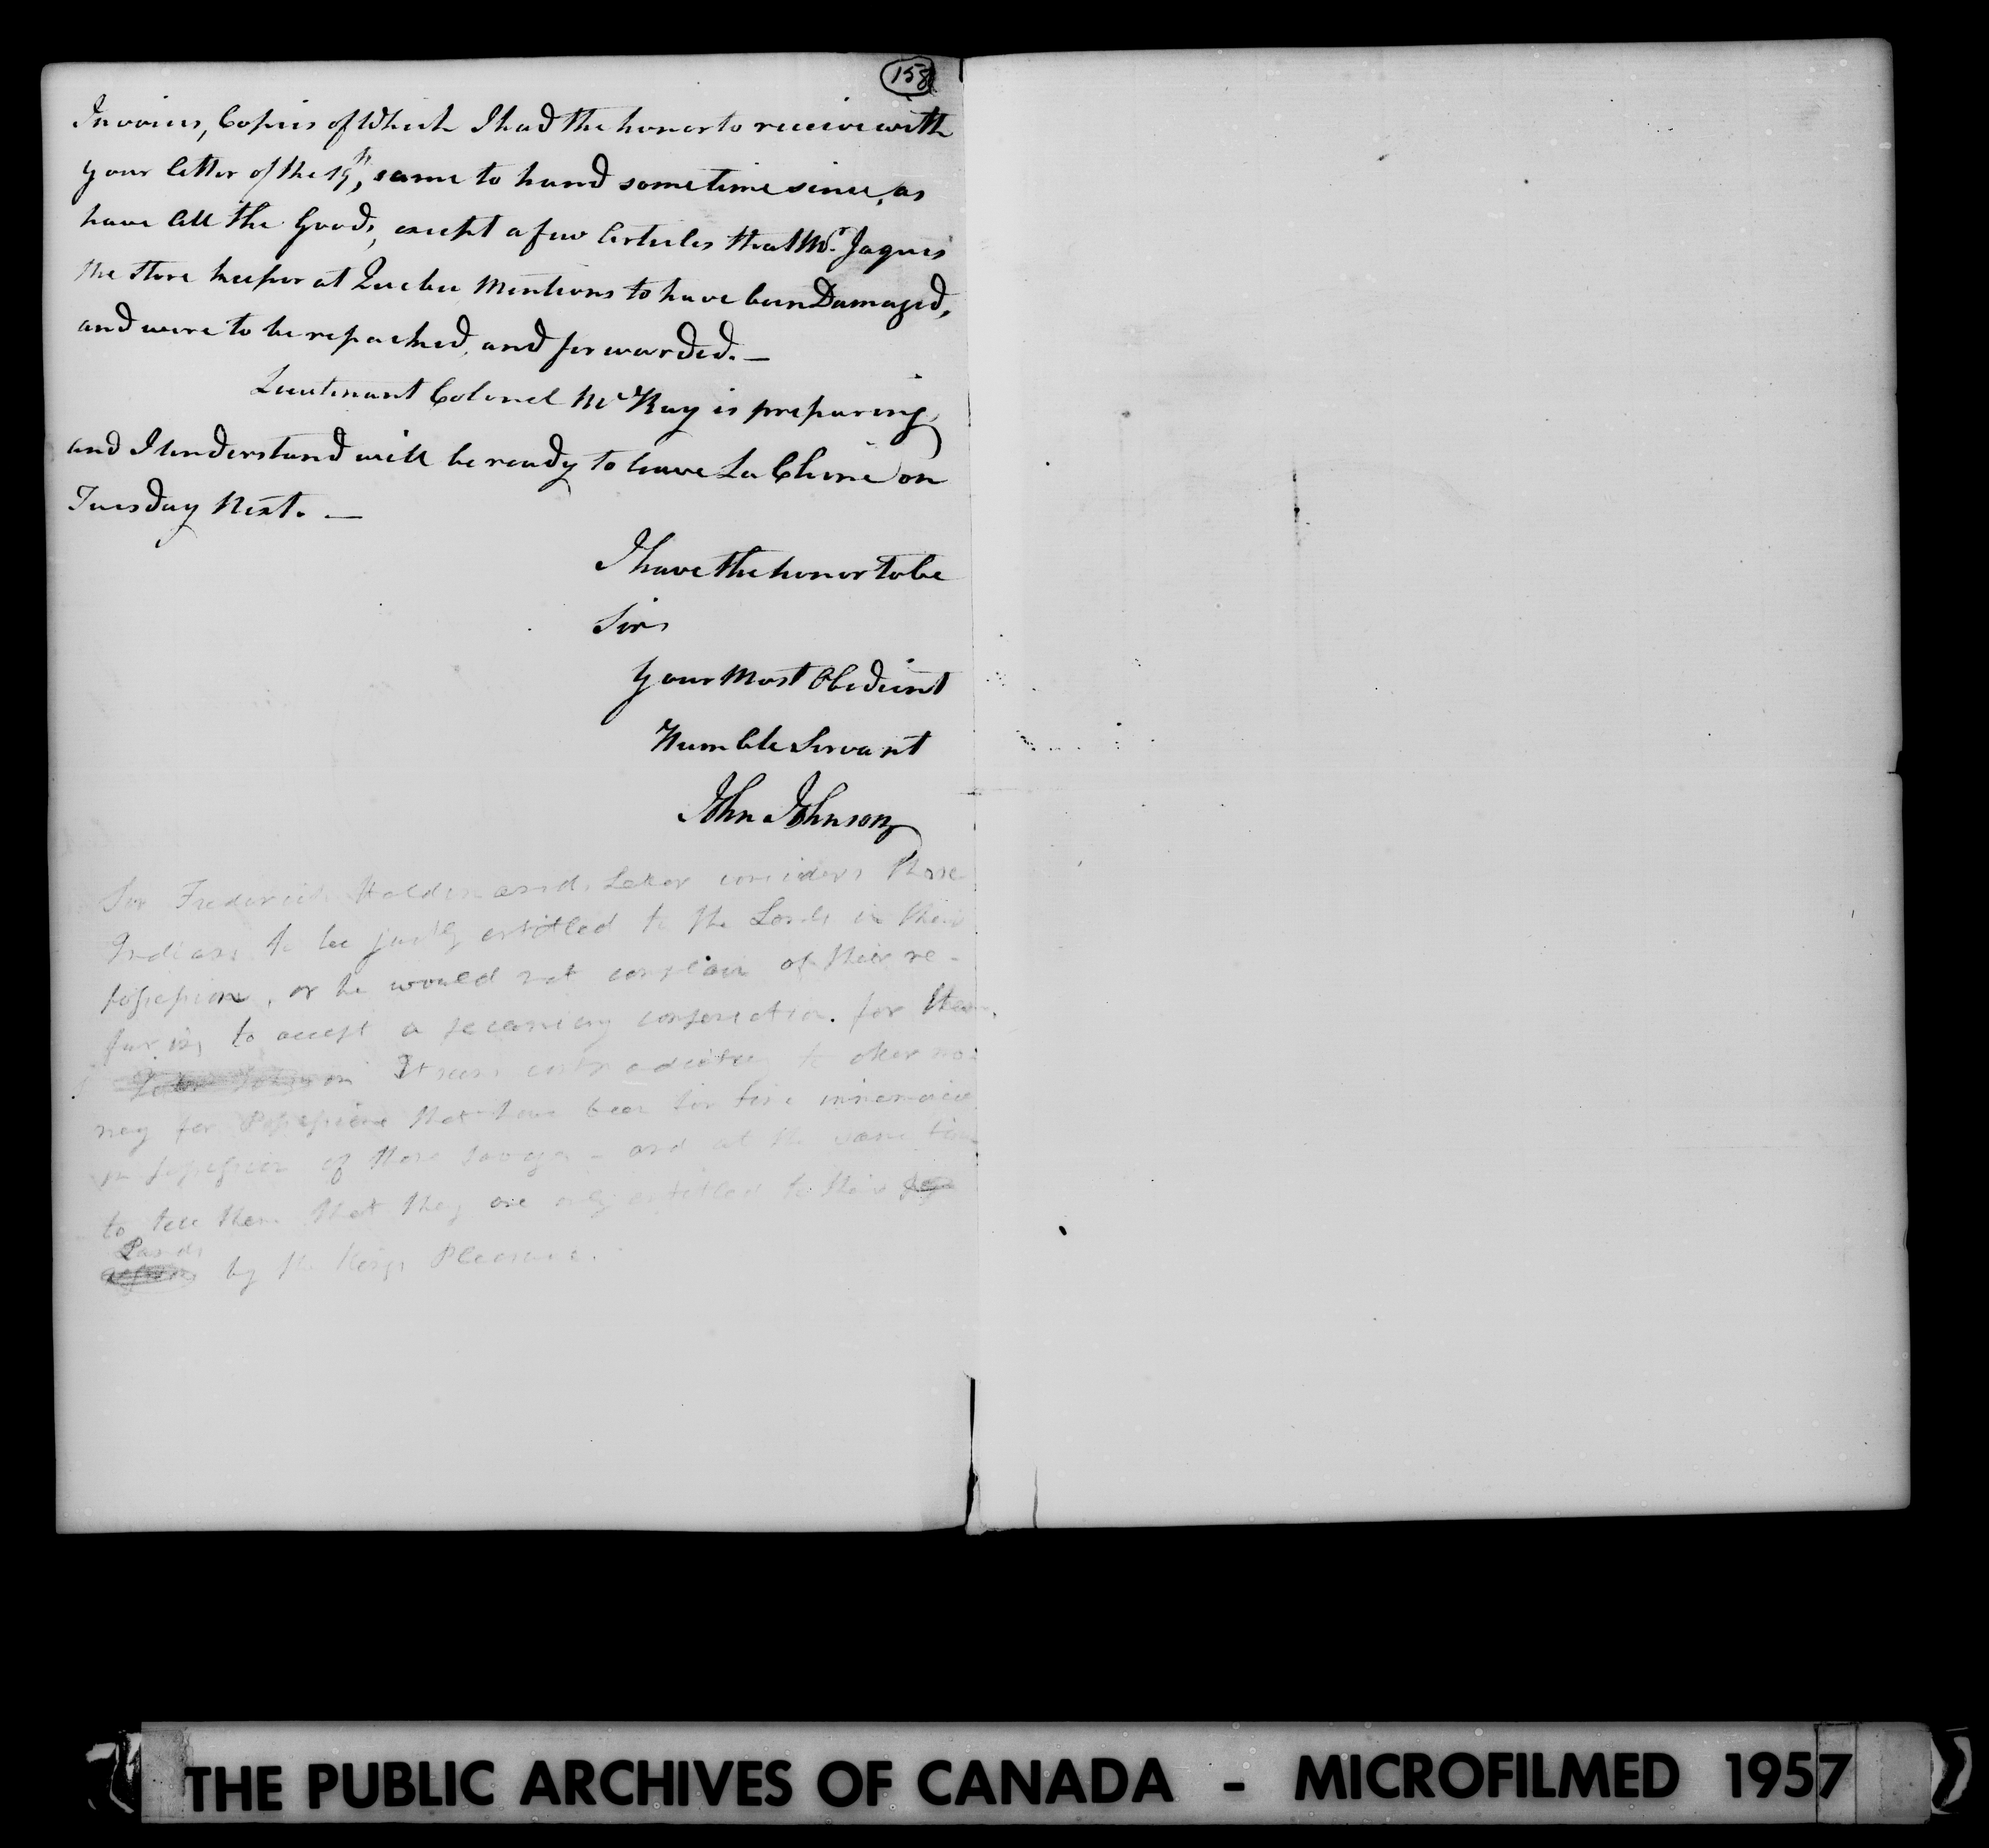 158
Invoices, Copies of Which I had the honor to receive with
your letter of the 19th, came to hand sometime since, as
have all the Goods, except a few Articles that Mr. Jaques
the Store keeper at Quebec Mentions to have been Damaged,
and were to be repacked, and forwarded. —
Lieutenant Colonel McKay is preparing,
and I understand will be ready to leave La Chine on
Tuesday Next. —
I have the honor to be
Sir
Your Most Obedient
Humble Servant
John Johnson
Sir Frederick Haldimand's Letter considers these
Indians to be justly entitled to the Lands in their
possession, or he would not complain of their re-
fusing to accept a pecuniary compensation for them.
It seems contradictory to offer mo-
ney for Possessions that have been for time immemorial
in possession of those Savages - and at the same time
to tell them that they are only entitled to their
Lands
by the Kings Pleasure.
THE PUBLIC ARCHIVES OF CANADA - MICROFILMED 1957